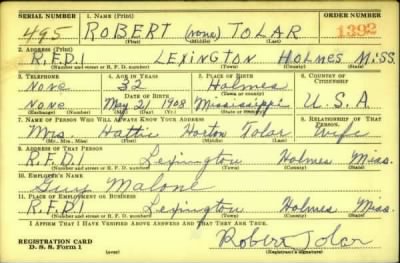 SERIAL NUMBER 1. NAME (Print) ORDER NUMBER
495 ROBERT (none) TOLAR 1392
(First) (Middle) (Last)
2. ADDRESS (Print)
R.F.D.1 LEXINGTON HOLMES MISS.
(Number and street or R. F. D. number) (Town) (County) (State)
3. TELEPHONE 4. AGE IN YEARS 5. PLACE OF BIRTH 6. COUNTRY OF CITIZENSHIP
None 32 Holmes
DATE OF BIRTH (Town or county)
None May 21 1908 Mississippi U.S.A
(Exchange) (Number) (Mo.) (Day) (Yr.) (State or country)
7. NAME OF PERSON WHO WILL ALWAYS KNOW YOUR ADDRESS 8. RELATIONSHIP OF THAT PERSON
Mrs. Hattie Horton Tolar Wife
(Mr., Mrs., Miss) (First) (Middle) (Last)
9. ADDRESS OF THAT PERSON
R.F.D.1 Lexington Holmes Miss.
(Number and street or R. F. D. number) (Town) (County) (State)
10. EMPLOYER'S NAME
Guy Malone
11. PLACE OF EMPLOYMENT OR BUSINESS
R.F.D.1 Lexington Holmes Miss.
(Number and street or R. F. D. number) (Town) (County) (State)
I AFFIRM THAT I HAVE VERIFIED ABOVE ANSWERS AND THAT THEY ARE TRUE.
REGISTRATION CARD
D. S. S. Form 1 Robert Tolar
(Registrant's signature)